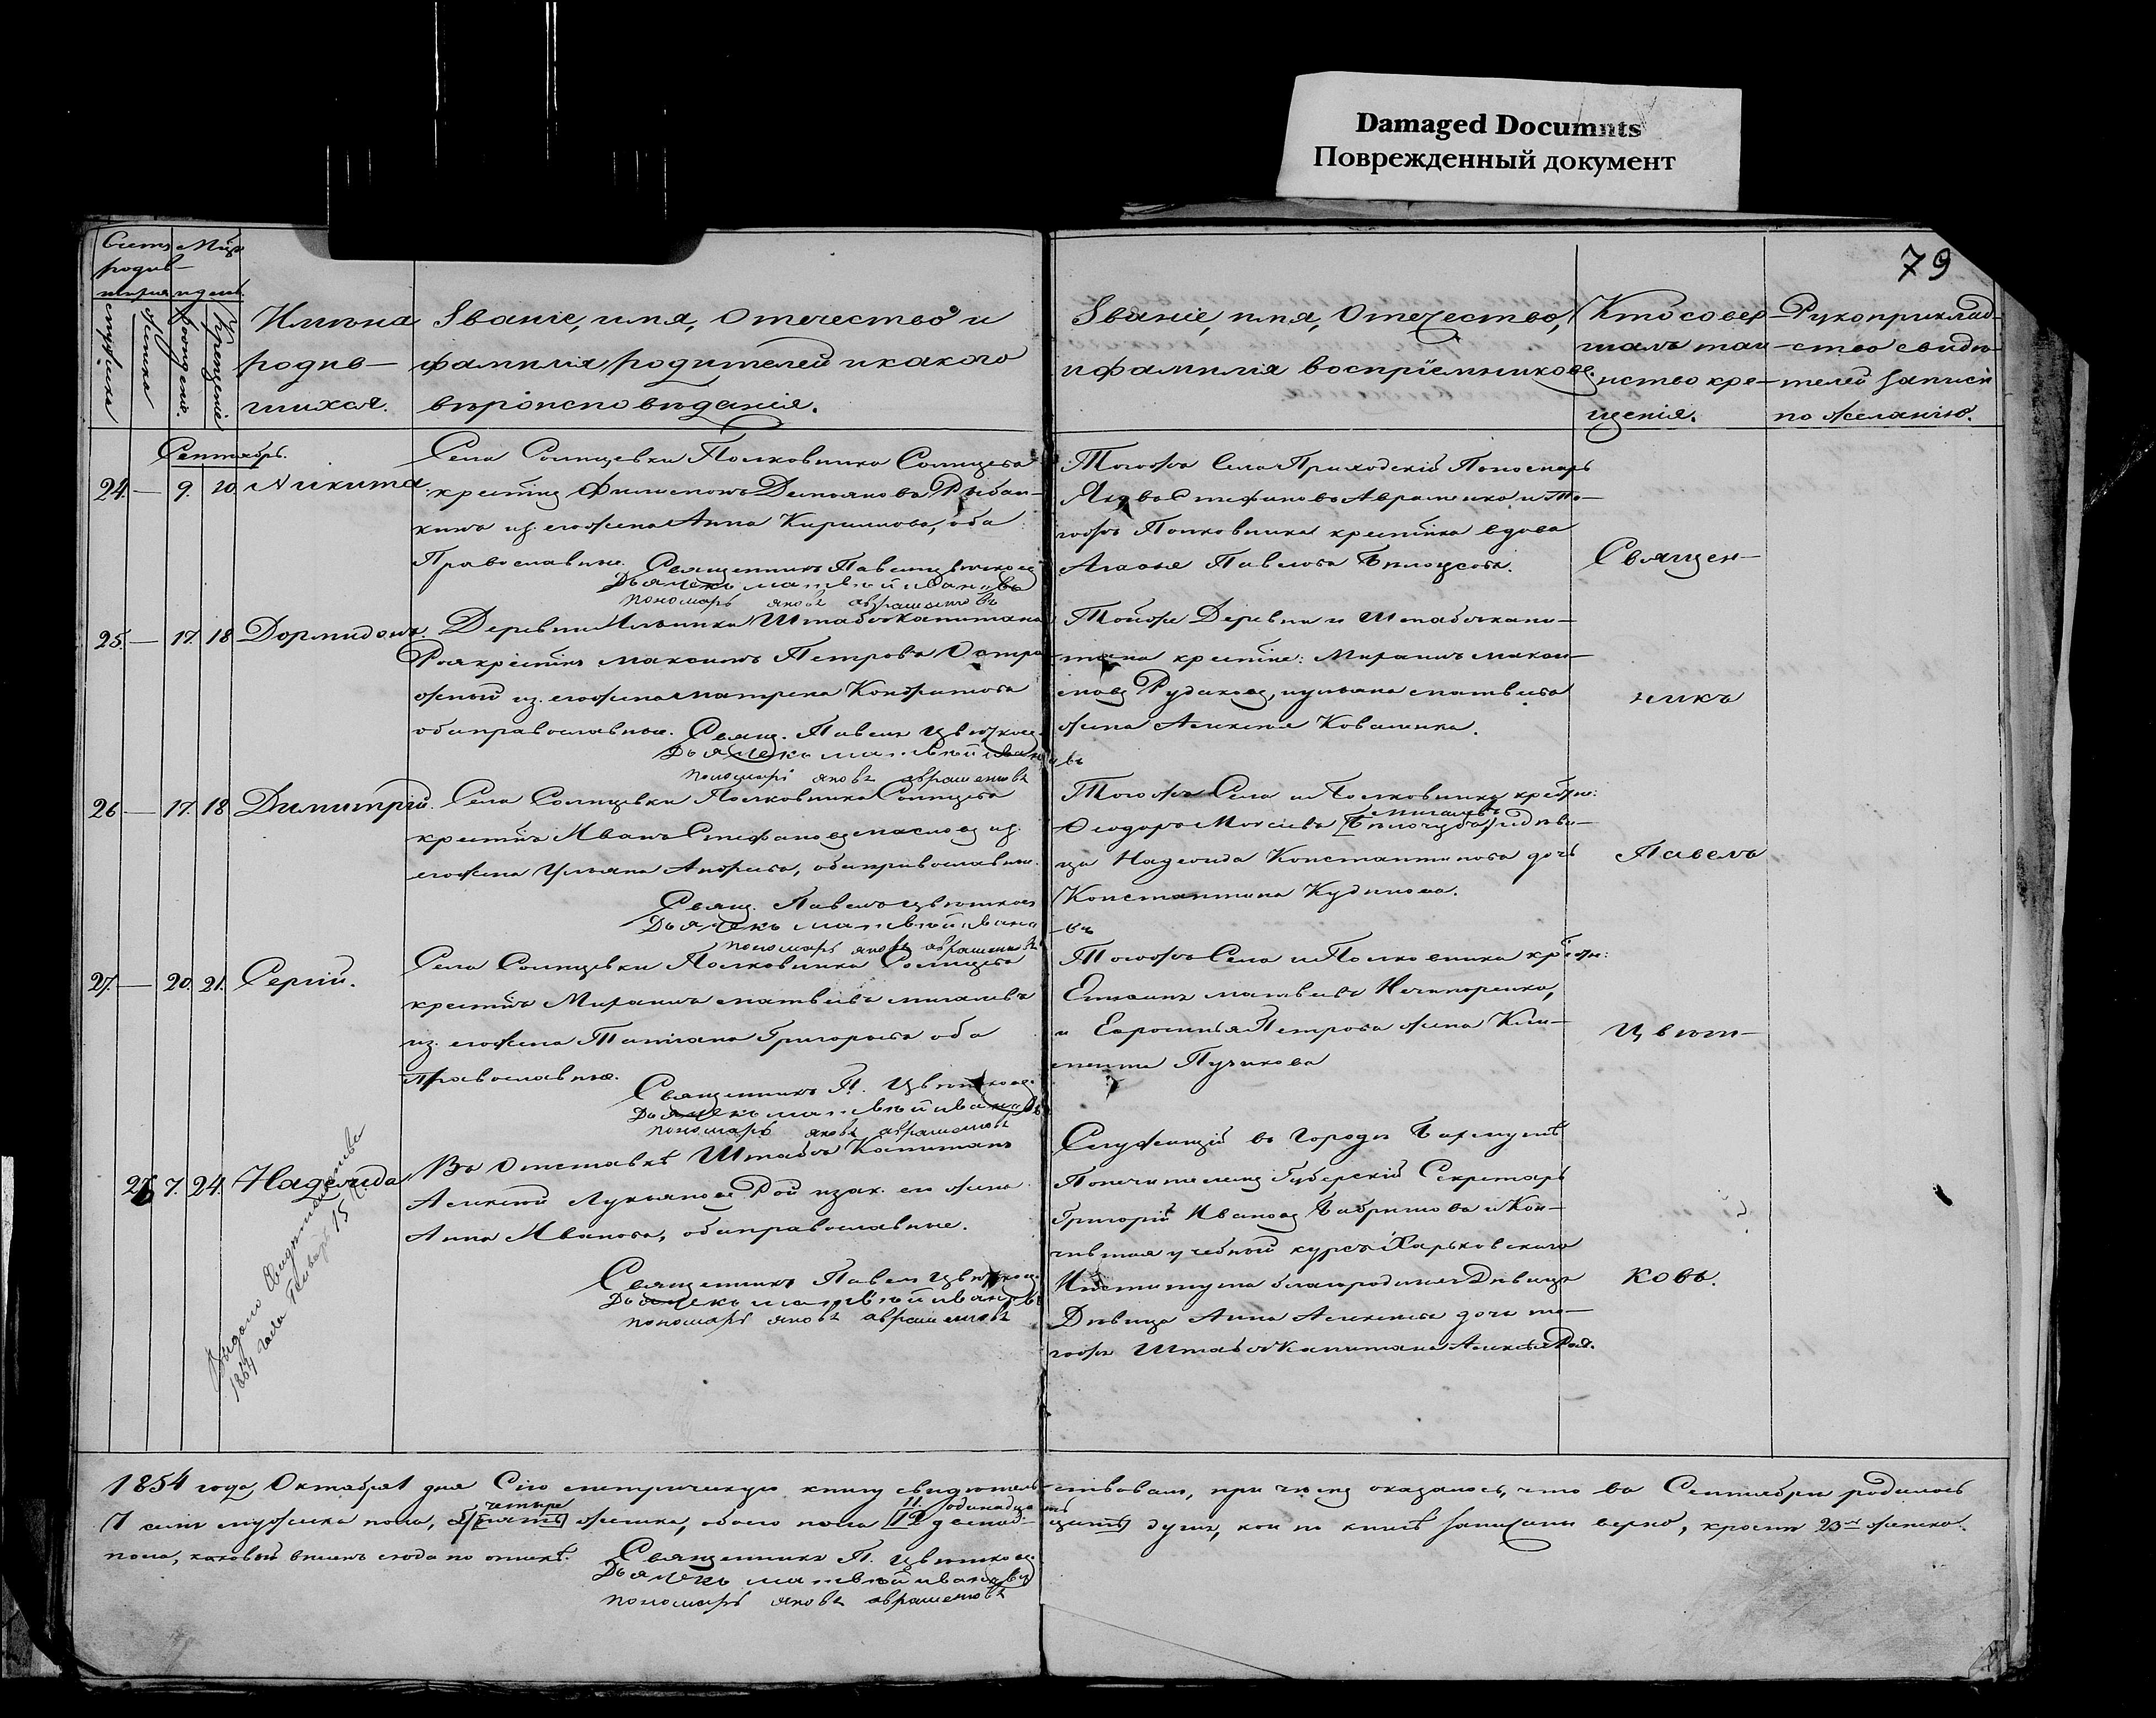 Damaged Documnts
Поврежденный документ
79
Счетъ
родив-
шихся
Мѣсяцъ
и день.
мужска
женска
рожденія.
крещенія
Имена
родив-
шихся.
Званіе, имя, Отечество и
фамилія родителей и какого
вѣроисповѣданія.
Званіе, имя, Отечество,
и фамилія воспріемниковъ.
Кто совер-
шалъ таи-
нство кре-
щенія.
Рукоприклад-
ство свидѣ-
телей записи
по желанію.
Сентябрь.
24. — 9. 20. Никита.
Села Солнцевки Полковника Солнцева
крестнъ Филимонъ Демьяновъ
кинъ из. его жена Анна Кирилова, оба
Православные. Священникъ Павелъ Цвѣтковъ
Дьячекъ матвѣй ивановъ
пономарь яковъ аврамовъ
Тогожъ Села Приходскій Пономарь
Яковъ Стефановъ Авраменко и То-
гожъ Полковника крестнка вдова
Агафья Павлова Бѣлоусова.
Священ-
25. — 17. 18. Дормидонтъ.
Деревни Ильинки Штабсъ Капитана
Роя крестнъ Максимъ Петровъ Остро-
жный из. его жена матрена Кондратова
оба православные. Свящ. Павелъ Цвѣтковъ.
Дьячекъ матвѣй ивановъ
пономарь яковъ авраменковъ
Тойже Деревни и Штабскапи-
тана крестне: Миронъ макси-
мовъ Рудиковъ, иульяна матвеева
жена Алексея Коваленка.
никъ
26. — 17. 18. Димитрій.
Села Солнцевки Полковника Солнцева
крестнъ Иванъ Стефановъ масловъ из.
его жена Ульяна Андреева, оба православные.
Свящ. Павелъ Цвѣтковъ
Дьячекъ матвѣй ивановъ
пономарь яковъ авраменковъ
Тогожъ Села и Полковника крестне:
мигалевъ
Феодоръ Моисеевъ и дѣви-
ца Надежда Константинова дочь
Константина Кудинова.
Павелъ
27. — 20. 21. Сергій.
Села Солнцевки Полковника Солнцева
крестнъ Миронъ матвеевъ мигалевъ
из. его жена Татіана Григорьева оба
православные.
Священникъ П. Цвѣтковъ.
Дьячекъ матвѣй ивановъ
пономарь яковъ авраменковъ
Тогожъ Села и Полковника крестне:
матвеевъ Нечипоренко,
и Евросинья Петрова жена Кли-
мента Пучкова
Цвѣт-
26 7. 24. Надежда
Въ Отставкѣ Штабсъ Капитанъ
Алексей Лукьяновъ Рой изак. его жена
Анна Иванова, оба православные.
Священникъ Павелъ Цвѣтковъ.
Дьячекъ матвѣй ивановъ
пономарь яковъ авраменковъ
Служащій въ Городѣ Бахмутѣ
Попечителемъ Губерскій Секретарь
Григорій Ивановъ и Кон-
чившая учебный курсъ Харьковскаго
Института благородныхъ Дѣвицъ
Дѣвица Анна Алексеева дочь то-
гожъ Штабсъ Капитана Алексея Роя.
ковъ.
Выдано Свидѣтельство
1864 года Генваря 15
1854 года, Октября 1 дня Сію метрическую книгу свидѣтельствовали, при чемъ оказалось, что въ Сентябрѣ родилось
четыре
11. одинадцать
7 семъ мужска пола, [пять] женска, обоего пола [12 двенадцать] душъ, кои по книгѣ записаны верно, кромѣ 23го женска.
пола, каковый вписанъ сюда по ошибкѣ. Священникъ П. Цвѣтковъ.
Дьячекъ матвѣй ивановъ
пономарь яковъ авраменковъ